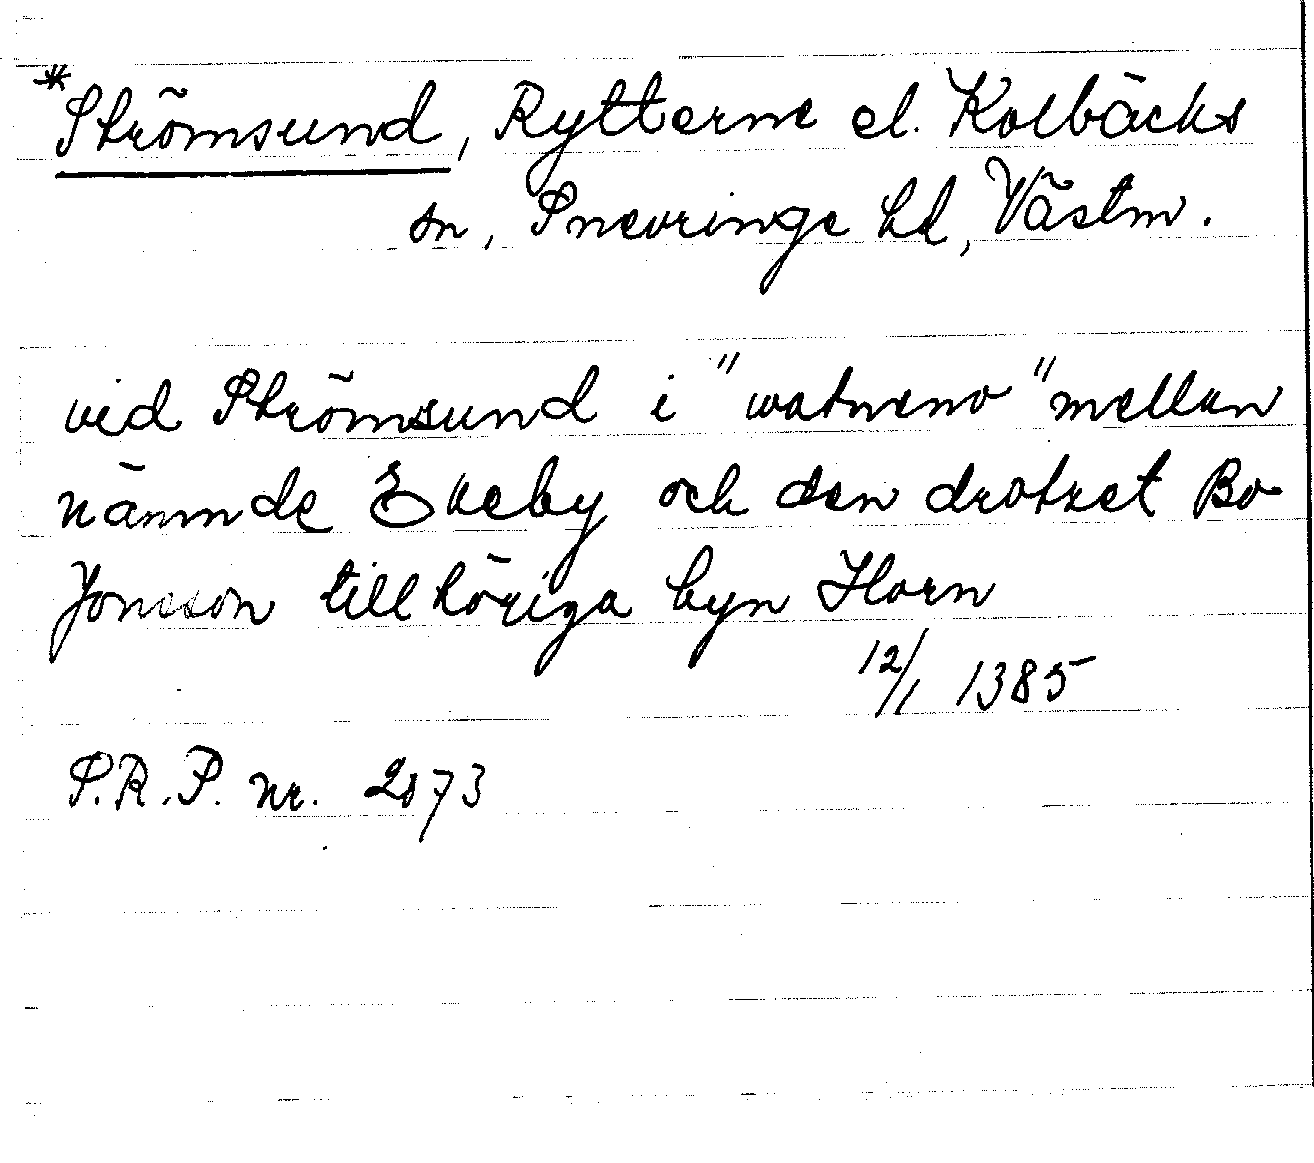 *Strömsund, Rytterne el. Kolbäcks
sn, Snevringe hd, Västm.
vid Strömsund i "watneno" mellan
nämnde Ekeby och den drotzet Bo
Jonsson tillhöriga byn Horn
12/1 1385
S.R.P. nr. 2073